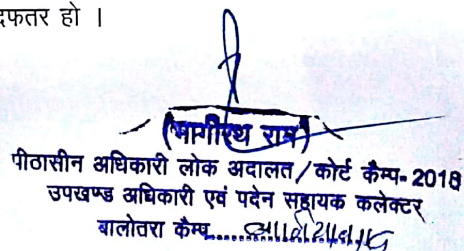 दफतर हो ।
(भागीरथ राम)
पीठासीन अधिकारी लोक अदालत/कोर्ट कैम्प-2018
उपखण्ड अधिकारी एवं पदेन सहायक कलेक्टर
बालोतरा कैम्प